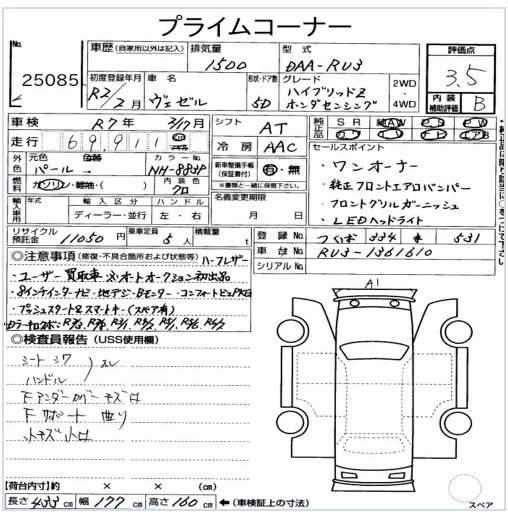 プライムコーナー
No.
25085
車歴 (自家用以外は記入) 排気量 1500 型式 DAA-RU3
初度登録年月 R2/2月 車名 ヴェゼル 形状・ドア数 5D グレード ハイブリッドZ ホンダセンシング 2WD・4WD
評価点 3.5
内装補助評価 B
車検 R7年 3/7月 シフト AT
走行 69,911
冷房 AAC
純正品 SR AW PS PW カワ ナビ TV エアB
外色 元色 パール→ 色替 カラーNo. NH-883P
燃料 ガソリン・軽油・( ) 内装色 クロ
新車整備手帳(保証書付) 有・無
※書類と一緒に保管下さい。
名義変更期限
月 日
輸入車用 年式 輸入区分 ハンドル
ディーラー・並行 左・右
セールスポイント
・ワンオーナー
・純正フロントエアロバンパー
・フロントグリルガーニッシュ
・LEDヘッドライト
リサイクル預託金 11050円 乗車定員 5人 積載量 t
登録No. つくば 334 ま 531
車台No. RU3-1361610
シリアルNo.
◎注意事項 (修復・不具合箇所および状態等) ハーフレザー
・ユーザー買取車
・8インチインターナビ・地デジ・Bモニター・コンフォートビューPKG
・プッシュスタート&スマートキー(スペア有)
◎検査員報告 (USS使用欄)
シートシワ
ハンドル スレ
下アンダーカバーキズ
下サポート曲り
【荷台内寸】約 × × (cm)
長さ 433cm 幅 177cm 高さ 160cm ←(車検証上の寸法)
A1
スペア